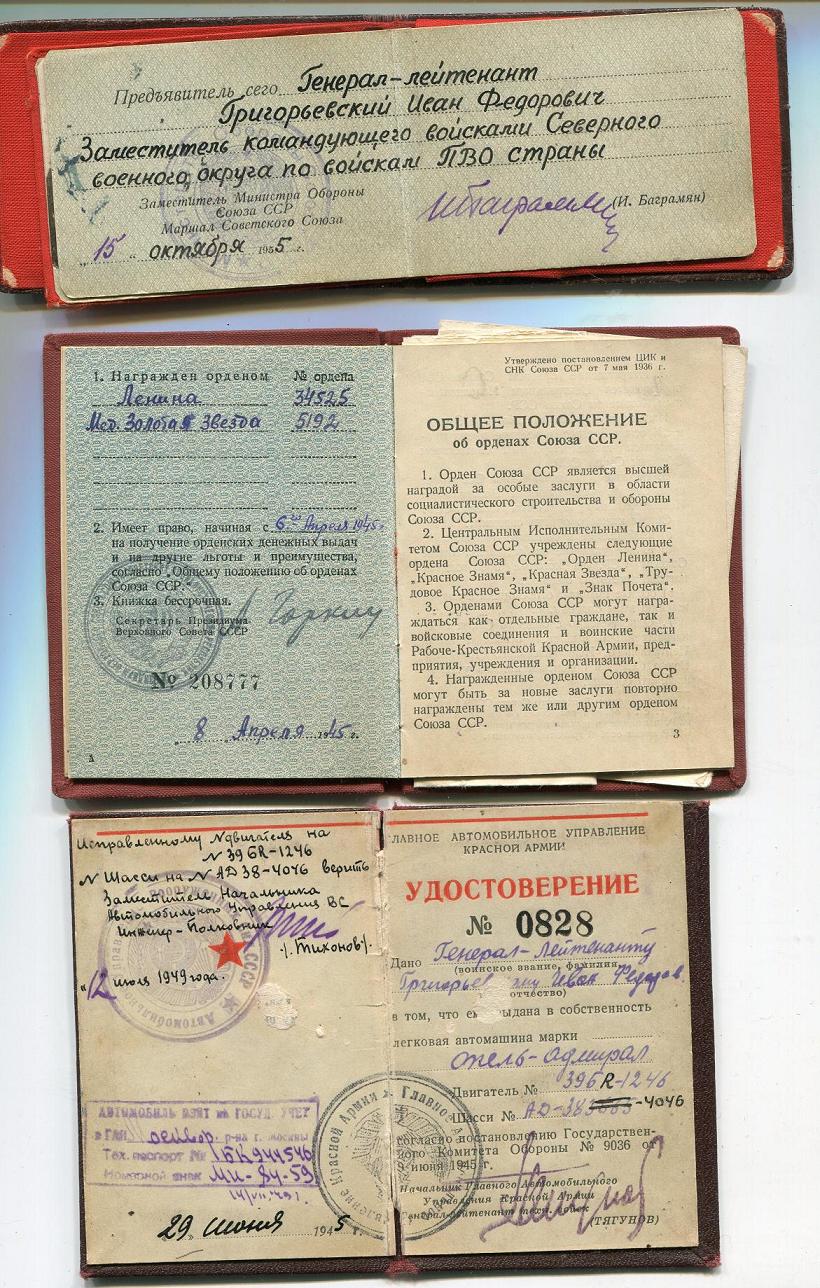 Предъявитель сего Генерал-лейтенант
Григорьевский Иван Федорович
Заместитель командующего войсками Северного
военного округа по войскам ПВО страны
Заместитель Министра Обороны
Союза ССР
Маршал Советского Союза
(И. Баграмян)
"15" октября 1955 г.
1. Награжден орденом № ордена
Ленина 34525
Мед. Золотая Звезда 5192
2. Имеет право, начиная с 6го Апреля 1945г.
на получение орденских денежных выдач
и на другие льготы и преимущества,
согласно „Общему положению об орденах
Союза ССР."
3. Книжка бессрочная.
Секретарь Президиума
Верховного Совета СССР
№ 208777
" 8 Апреля 1945 г.
А
Утверждено постановлением ЦИК и
СНК Союза ССР от 7 мая 1936 г.
ОБЩЕЕ ПОЛОЖЕНИЕ
об орденах Союза ССР.
1. Орден Союза ССР является высшей
наградой за особые заслуги в области
социалистического строительства и обороны
Союза ССР.
2. Центральным Исполнительным Коми-
тетом Союза ССР учреждены следующие
ордена Союза ССР: „Орден Ленина“,
„Красное Знамя“, „Красная Звезда“, „Тру-
довое Красное Знамя“ и „Знак Почета“.
3. Орденами Союза ССР могут награ-
ждаться как отдельные граждане, так и
войсковые соединения и воинские части
Рабоче-Крестьянской Красной Армии, пред-
приятия, учреждения и организации.
4. Награжденные орденом Союза ССР
могут быть за новые заслуги повторно
награждены тем же или другим орденом
Союза ССР.
3
Исправленному № двигателя на
N 396R-1246
N Шасси на N АД 38-4046 верить
Заместитель Начальника
Автомобильного Управления ВС
Инженер-Полковник
/.Тихонов/.
"12 июля 1949 года.
АВТОМОБИЛЬ ВЗЯТ НА ГОСУД. УЧЕТ
в ГАИ р-на г. Москвы
Тех. паспорт №
Номерной знак МИ-84-59
29 июня 1945 г.
ЛАВНОЕ АВТОМОБИЛЬНОЕ УПРАВЛЕНИЕ
КРАСНОЙ АРМИИ
УДОСТОВЕРЕНИЕ
№ 0828
Дано Генерал-Лейтенанту
(воинское звание, фамилия,
Иван Федоров.
отчество)
в том, что ему выдана в собственность
легковая автомашина марки
опель-адмирал
Двигатель № 396R-1246
Шасси № АД-38 -4046
согласно постановлению Государствен-
ного Комитета Обороны № 9036 от
9 июня 1945 г.
Начальник Главного Автомобильного
Управления Красной Армии
Генерал-лейтенант техн. войск
(ТЯГУНОВ)